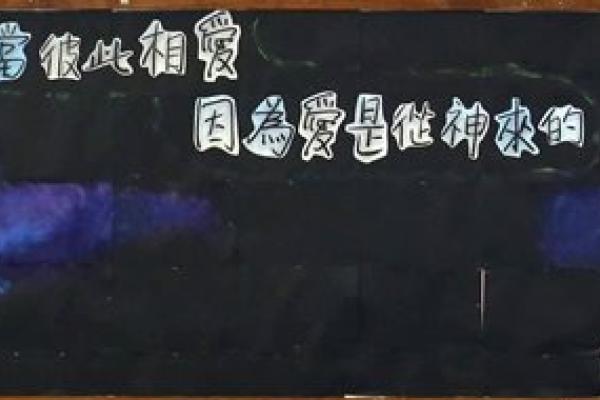 當彼此相愛
因為愛是從神來的